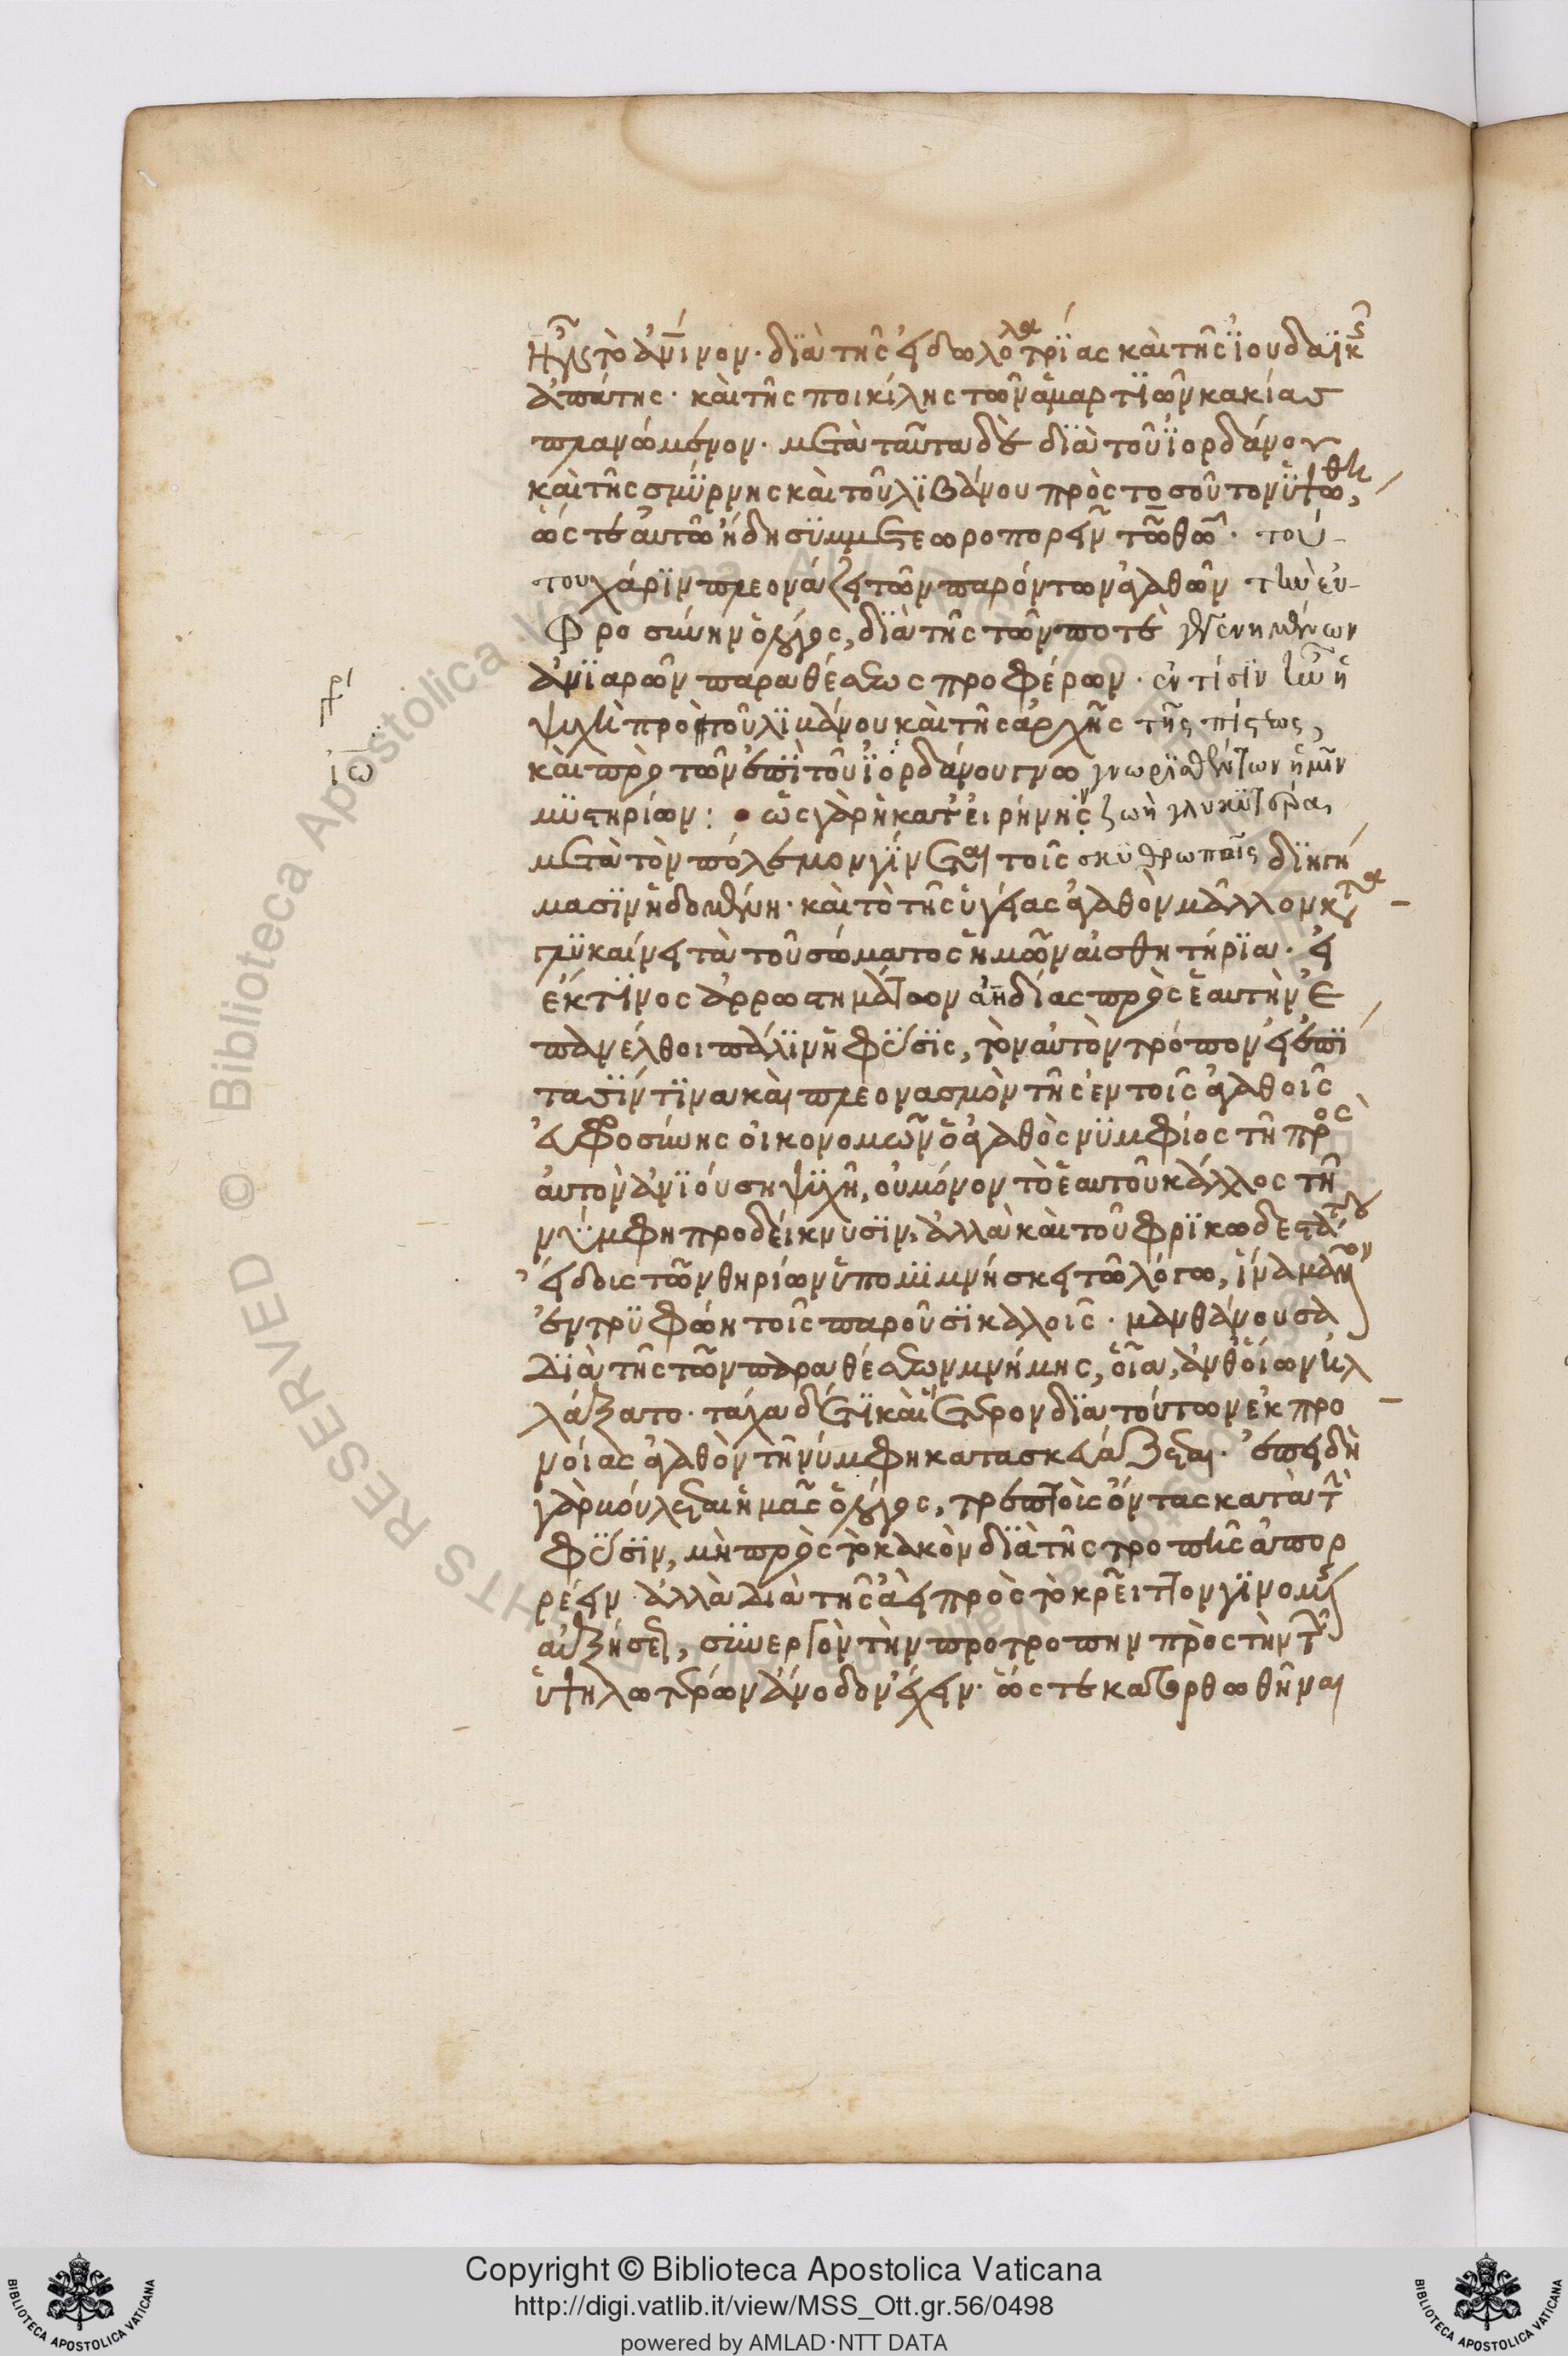 τὸ ἀν̅ινον· διὰ τῆς εἰδωλολατρίας καὶ τῆς ἰουδαϊκῆς
ἀπάτης· καὶ τῆς ποικίλης τῶν ἁμαρτιῶν κακίας
πλανώμενον· μετὰ ταῦτα δὲ διὰ τοῦ ἰορδάνου
καὶ τῆς σμύρνης καὶ τοῦ λιβάνου πρὸς τοσοῦτον ὑψώθη,
ὥςτε αὐτῶ ἤδη συμμετεωροπορεῖν τῶ θ̅ω̅· τού-
του χάριν πλεονάζει τῶν παρόντων ἀγαθῶν τὴν εὐ-
φροσύνην ὁ λόγος, διὰ τῆς τῶν ποτὲ γεγενημένων
ἀνιαρῶν παραθέσεως προφέρων· ἐν τίσιν ἦν ἡ
ψυχὴ πρὸ τοῦ λιβάνου καὶ τῆς ἀρχῆς τῆς πίστεως,
καὶ πρὸ τῶν ἐπὶ τοῦ ἰορδάνου γνωρισθέντων ἡμῖν
μυστηρίων: ὡς γὰρ ἡ κατ' εἰρήνην ζωὴ γλυκυτέρα
μετὰ τὸν πόλεμον γίνεται τοῖς σκυθρωποῖς διηγή
μασιν ἡδυνομένη· καὶ τὸ τῆς ὑγείας ἀγαθὸν μᾶλλον κατα
γλυκαίνει τὰ τοῦ σώματος ἡμῶν αἰσθητήρια· εἰ
ἐκ τινος ἀρρωστημάτων ἀηδίας πρὸς ἑαυτὴν ἐ
πανέλθοι πάλιν ἡ φύσις, τὸν αὐτὸν τρόπον εἰς ἐπί
τασίν τινα καὶ πλεονασμὸν τῆς ἐν τοῖς ἀγαθοῖς
εὐφροσύνης οἰκονομῶν ὁ ἀγαθὸς νυμφίος τῆ πρὸς
αὐτὸν ἀνιούση ψυχῆ, οὐ μόνον τὸ ἑαυτοῦ κάλλος τῆ
νύμφη προδείκνυσιν, ἀλλὰ καὶ τοῦ φρικωδεστάτου
εἴδους τῶν θηρίων ὑπομιμνήσκει τῶ λόγω, ἵνα μᾶλλον
ἐντρυφώη τοῖς παροῦσι καλοῖς· μανθάνουσα
διὰ τῆς τῶν παραθέσεων μνήμης, οἷα, ἀνθ' οἵων ἠλ
λάξατο· τάχα δέ τι καὶ ἕτερον διὰ τούτων ἐκ προ
νοίας ἀγαθὸν τῆ νύμφη κατασκευάζεται· ἐπειδὴ
γὰρ βούλεται ἡμᾶς ὁ λόγος, τρεπτοὺς ὄντας κατὰ τὴν
φύσιν, μὴ πρὸς τὸ κακὸν διὰ τῆς τροπῆς ἀπορ
ρέειν ἀλλὰ διὰ τῆς ἀεὶ πρὸς τὸ κρεῖττον γινομένης
αὐξήσεως, συνεργὸν τὴν προτροπὴν πρὸς τὴν τῶν
ὑψηλωτέρων ἄνοδον ἔχειν· ὥςτε κατορθωθῆναι